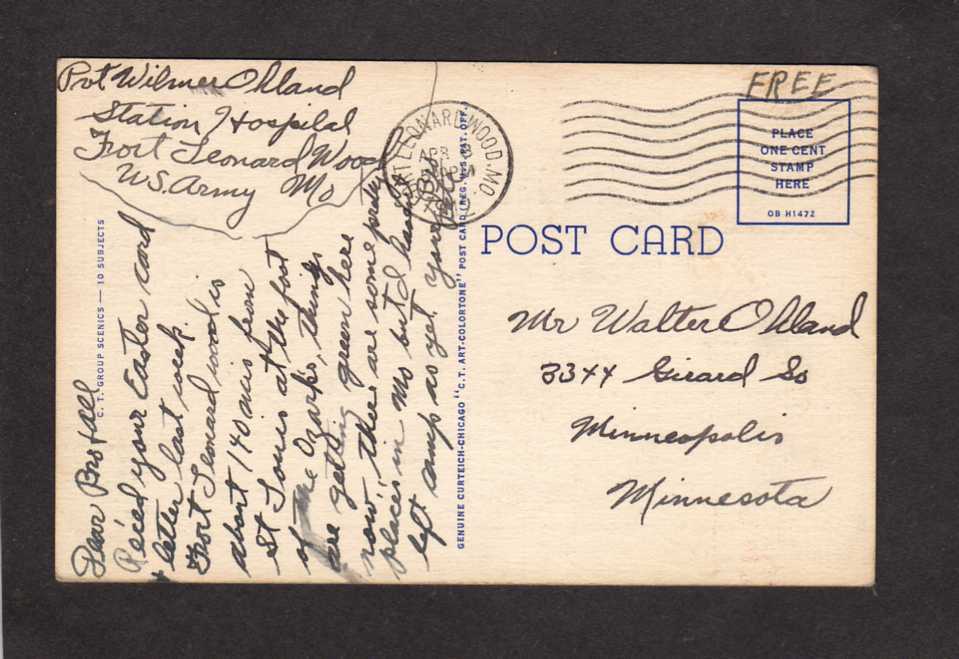 Pvt Wilmer Ohland
Station Hospital
Fort Leonard Wood
U.S. Army Mo
FREE
PLACE
ONE CENT
STAMP
HERE
OB H1472
FT LEONARD WOOD. MO.
APR
PM
POST CARD
C. T. GROUP SCENICS — 10 SUBJECTS
GENUINE CURTEICH-CHICAGO "C. T. ART-COLORTONE" POST CARD (REG. U.S. PAT. OFF.)
Mr Walter Ohland
3344 Girard So
Minneapolis
Minnesota
Dear Bro & all
Rec'ed your Easter card
+ letter last week.
Fort Leonard wood is
about 140 mis from
St Louis at the foot
of the Ozarks, things
are getting green here
now, there are some pretty
places in Mo but I haven't
left camp as yet. your
Bro